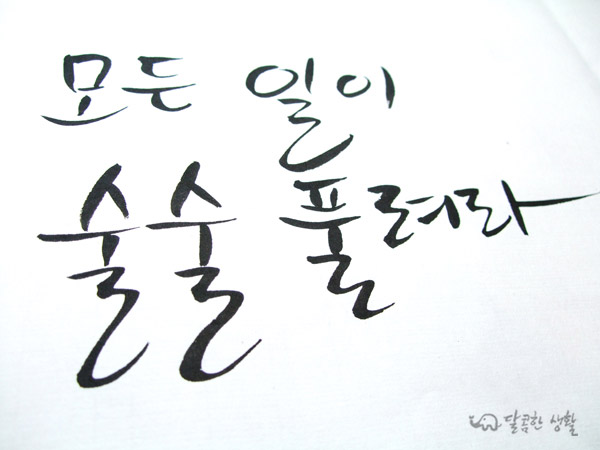 모든 일이
술술 풀려라
달콤한 생활